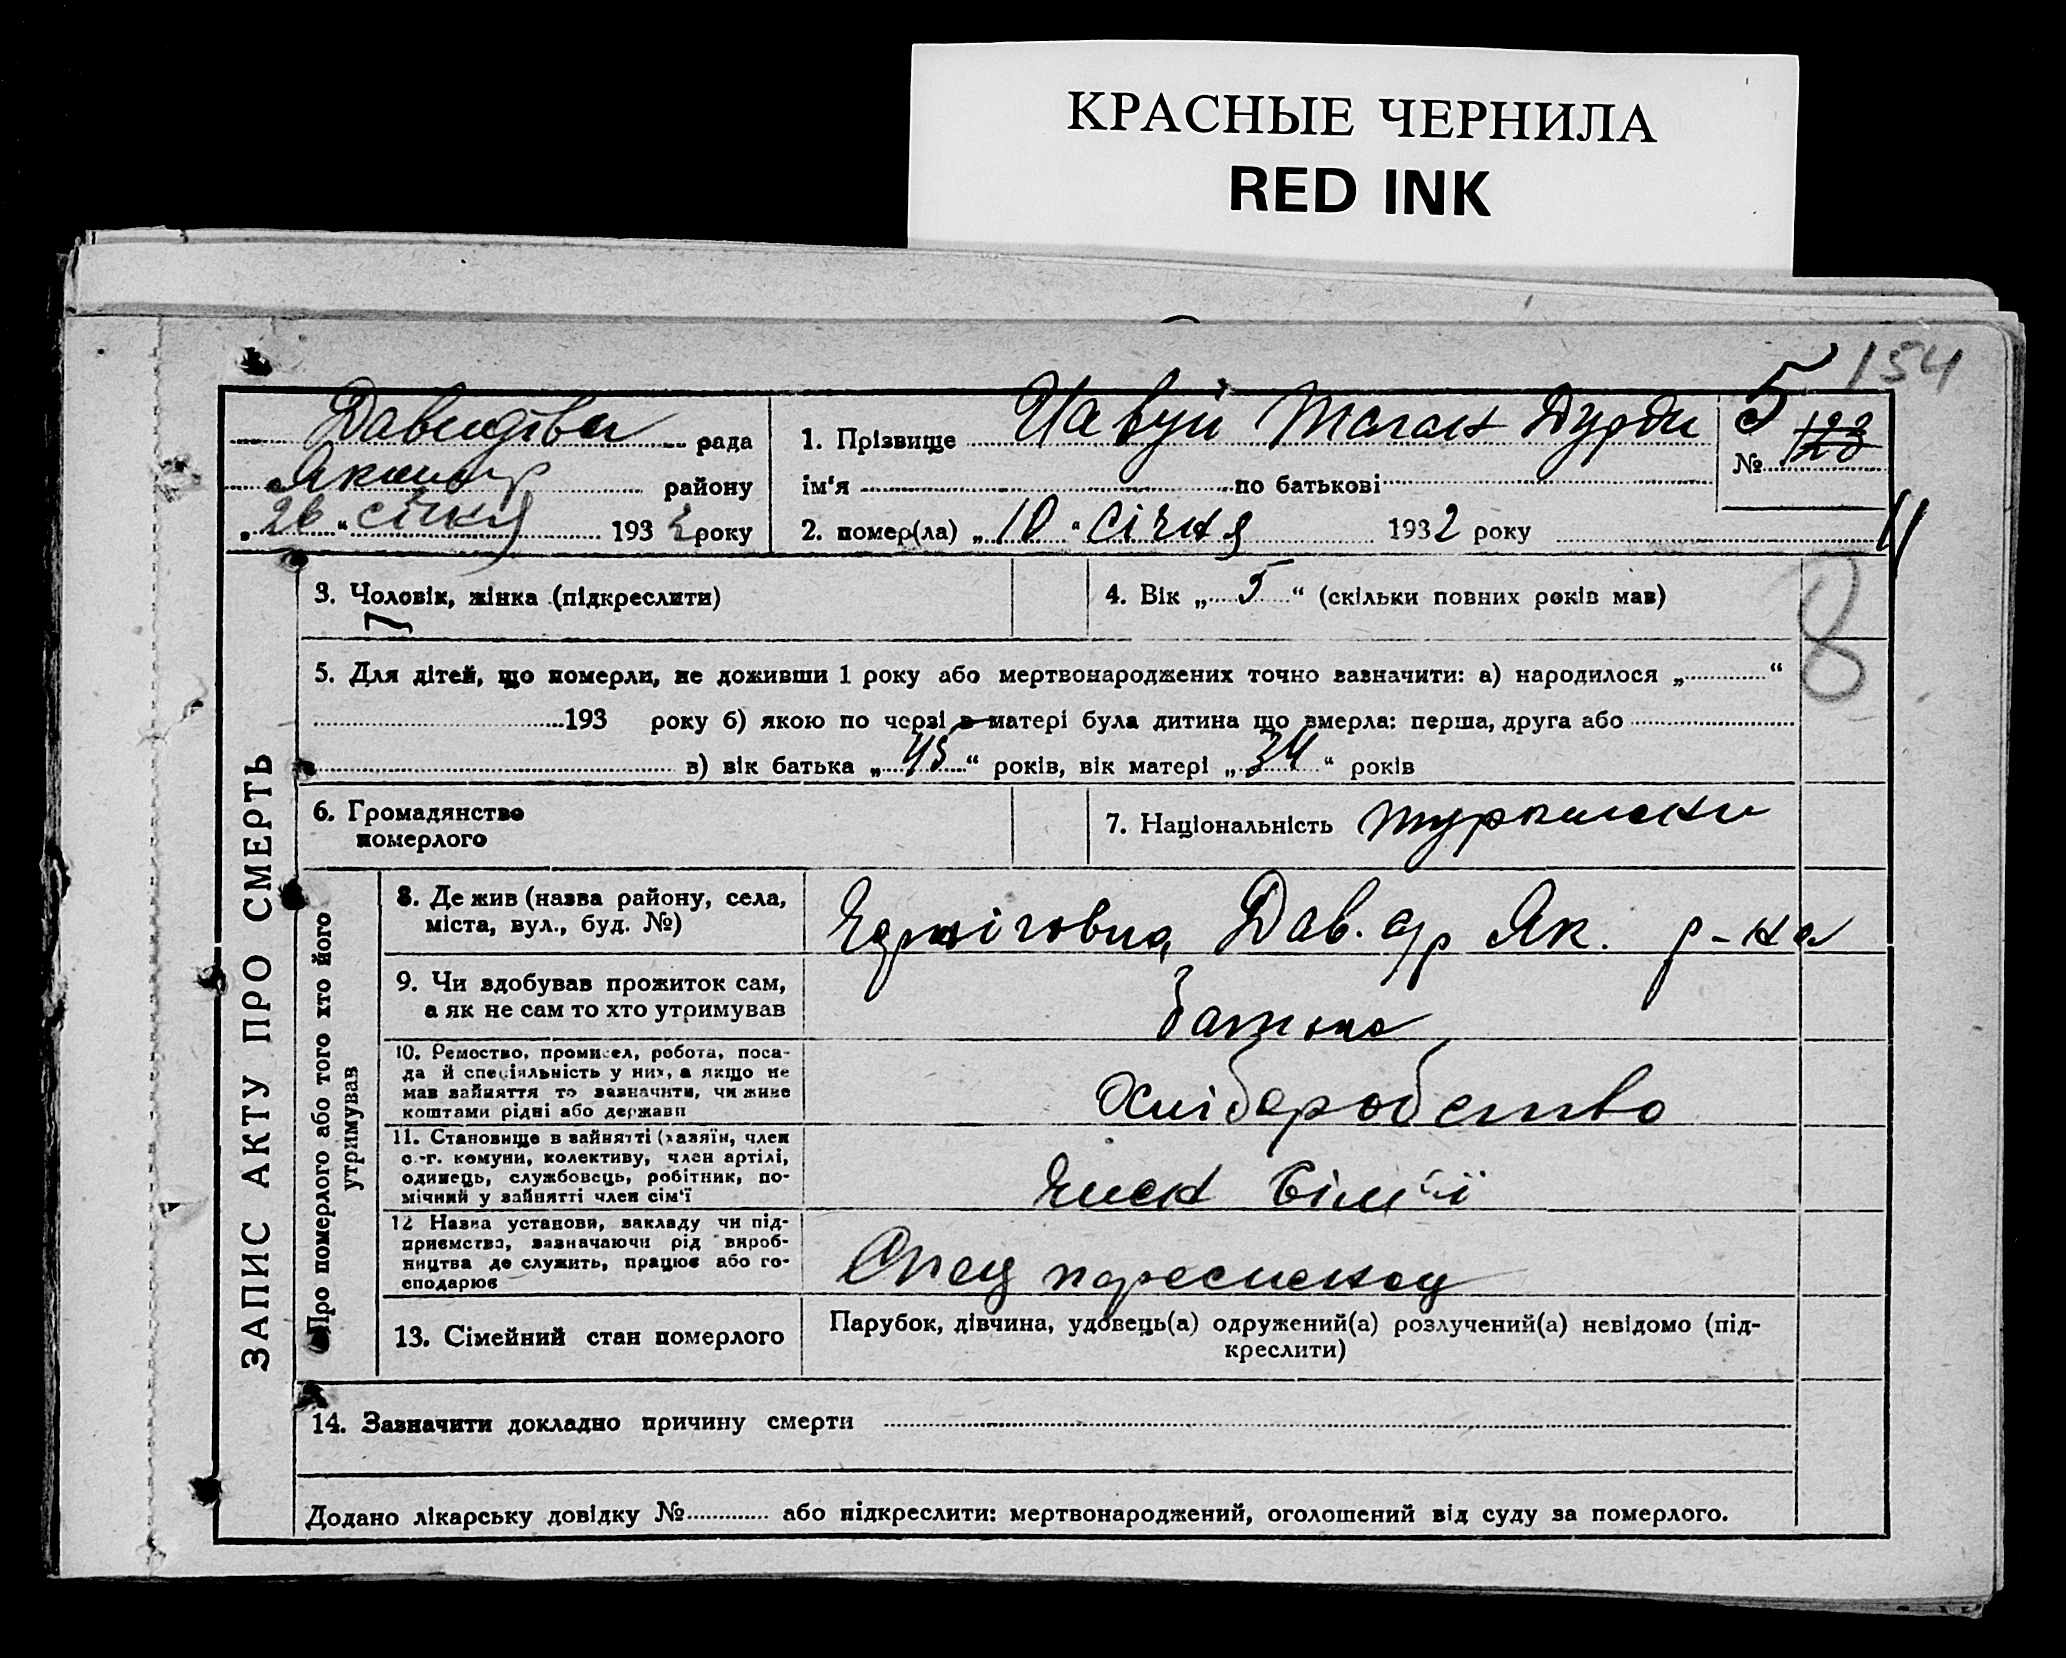 КРАСНЫЕ ЧЕРНИЛА
RED INK
154
5
Давидівка рада
Якимър району
„26“ січня 1932 року
1. Прізвище Чавуй Таган Дурди
№ 123
ім'я по батькові
2. помер(ла) „10“ Січня 1932 року
ЗАПИС АКТУ ПРО СМЕРТЬ
3. Чоловік, жінка (підкреслити)
4. Вік „5“ (скільки повних років мав)
8
5. Для дітей, що померли, не доживши 1 року або мертвонароджених точно зазначити: а) народилося „ “
193 року б) якою по черзі в матері була дитина що вмерла: перша, друга або
в) вік батька „45“ років, вік матері „34“ років
6. Громадянство
померлого
7. Національність
Про померлого або того хто його
утримував
8. Де жив (назва району, села,
міста, вул., буд. №)
Дав. с/р Як. р-на
9. Чи здобував прожиток сам,
а як не сам то хто утримував
Батько
10. Ремество, промисел, робота, поса-
да й спеціяльність у них, а якщо не
мав зайняття то зазначити, чи живе
коштами рідні або держави
Хліборобство
11. Становище в зайнятті (хазяїн, член
с.-г. комуни, колективу, член артілі,
одинець, службовець, робітник, по-
мічний у зайнятті член сім'ї
Член Сім'ї
12 Назва установи, закладу чи під-
приємства, зазначаючи рід вироб-
ництва де служить, працює або го-
сподарює
Спец переселенец
13. Сімейний стан померлого
Парубок, дівчина, удовець(а) одружений(а) розлучений(а) невідомо (під-
креслити)
14. Зазначити докладно причину смерти
Додано лікарську довідку № або підкреслити: мертвонароджений, оголошений від суду за померлого.